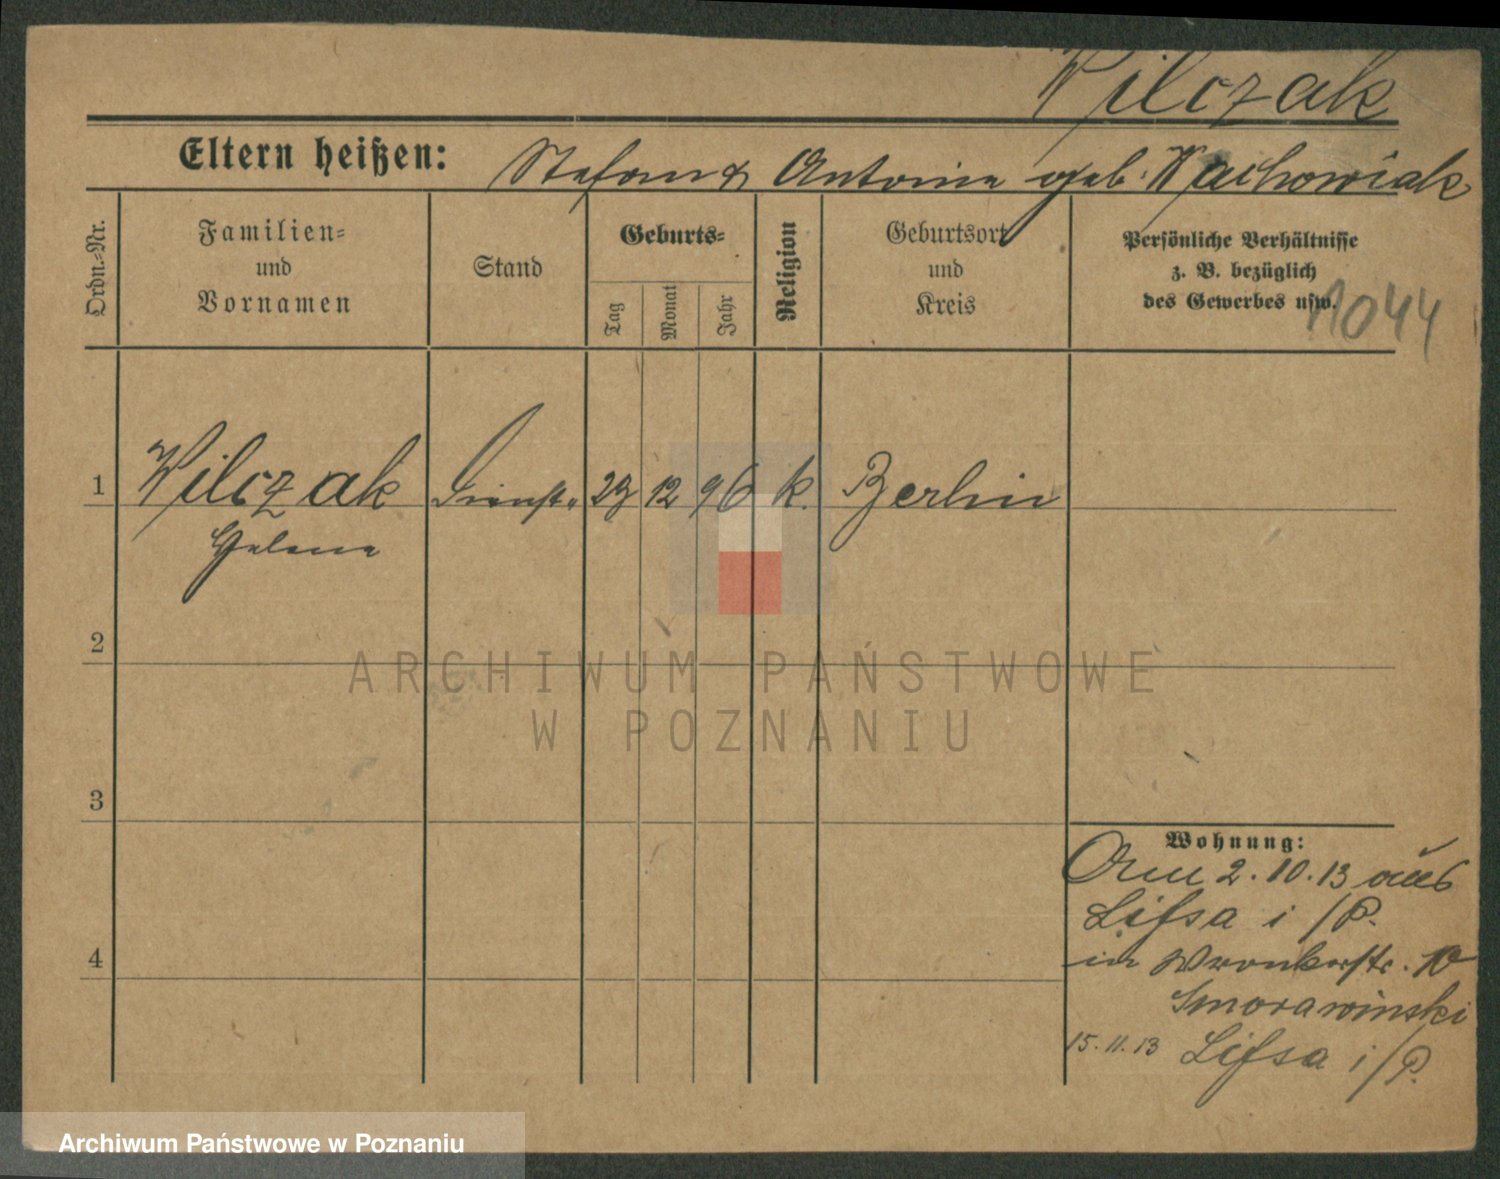 Wilczak
Eltern heißen: Stefan & Antonie geb. Wachowiak
Ordn.-Nr.
Familien-
und
Vornamen
Stand
Geburts-
Tag
Monat
Jahr
Religion
Geburtsort
und
Kreis
Persönliche Verhältnisse
z. B. bezüglich
des Gewerbes usw.
1044
1 Wilczak Dienst. 23 12 96 k. Berlin
Helene
2
3
4
Wohnung:
Am 2.10.13 aus
Lissa i/P.
in Wronkerstr. 10
Smorawinski
15.11.13 Lissa i/P.
ARCHIWUM PAŃSTWOWE
W POZNANIU
Archiwum Państwowe w Poznaniu